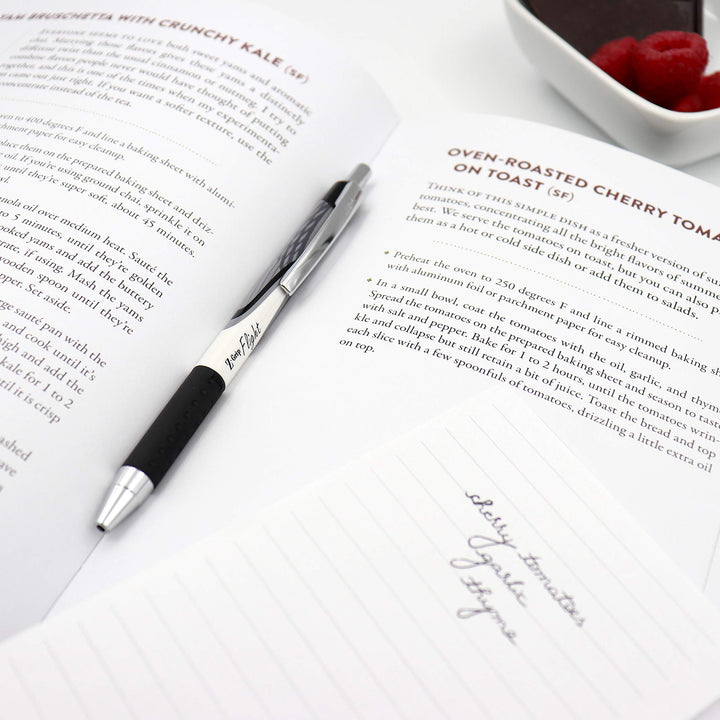 YAM BRUSCHETTA WITH CRUNCHY KALE (SF)
EVERYONE SEEMS TO LOVE both sweet yams and aromatic
chai. Marrying those flavors gives these yams a distinctly
different twist than the usual cinnamon or nutmeg. I try to
combine flavors people never would have thought of putting
together, and this is one of the times when my experimenta-
came out just right. If you want a softer texture, use the
concentrate instead of the tea.
oven to 400 degrees F and line a baking sheet with alumi-
parchment paper for easy cleanup.
place them on the prepared baking sheet and driz-
oil. If you're using ground chai, sprinkle it on
until they're super soft, about 45 minutes.
canola oil over medium heat. Sauté the
to 5 minutes, until they're golden
cooked yams and add the buttery
if using. Mash the yams
wooden spoon until they're
pepper. Set aside.
large sauté pan with the
and cook until it's
high and add the
kale for 1 to 2
until it is crisp
mashed
Z-Grip Flight
OVEN-ROASTED CHERRY TOMA
ON TOAST (SF)
THINK OF THIS SIMPLE DISH as a fresher version of su
tomatoes, concentrating all the bright flavors of summ
best. We serve the tomatoes on toast, but you can also p
them as a hot or cold side dish or add them to salads.
• Preheat the oven to 250 degrees F and line a rimmed baking sh
with aluminum foil or parchment paper for easy cleanup.
• In a small bowl, coat the tomatoes with the oil, garlic, and thym
Spread the tomatoes on the prepared baking sheet and season to taste
with salt and pepper. Bake for 1 to 2 hours, until the tomatoes wrin-
kle and collapse but still retain a bit of juice. Toast the bread and top
each slice with a few spoonfuls of tomatoes, drizzling a little extra oil
on top.
cherry tomatoes
garlic
thyme